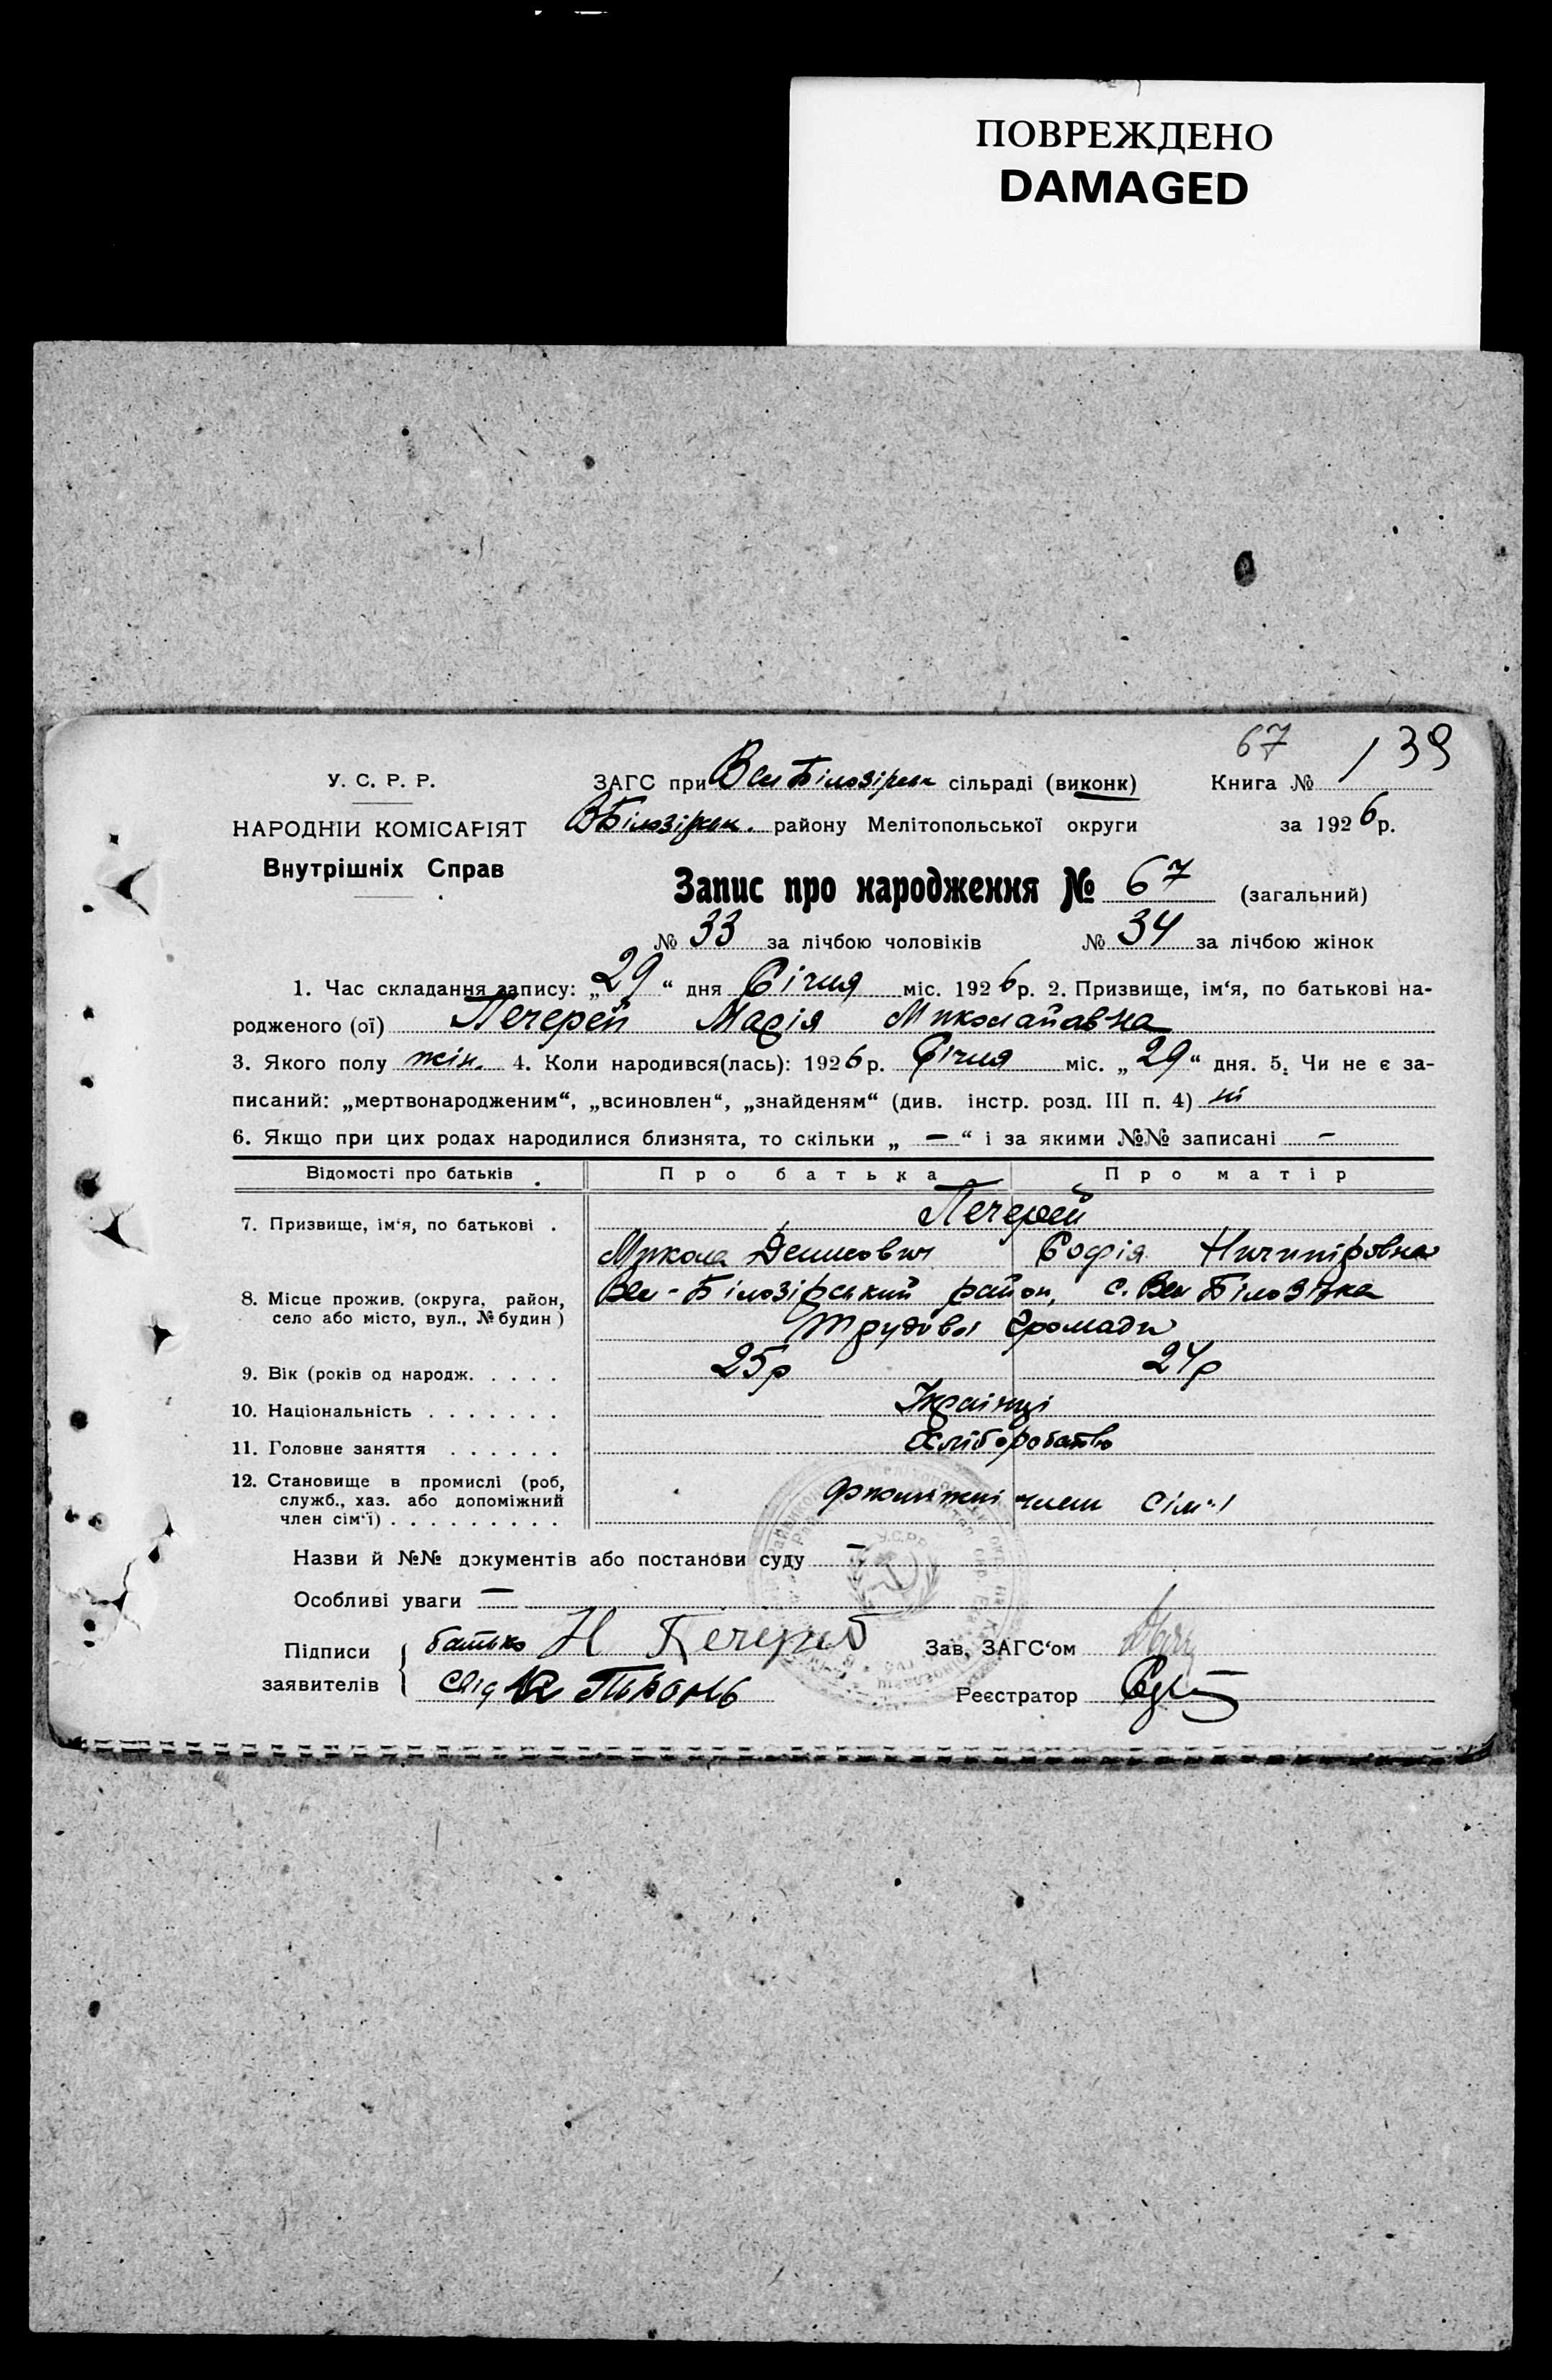 ПОВРЕЖДЕНО
DAMAGED
67 / 39
У. С. Р. Р.
ЗАГС при Вел Білозірськ сільраді (виконк) Книга №
НАРОДНІИ КОМІСАРІЯТ
ВБілозірськ. району Мелітопольської округи за 1926р.
Внутрішніх Справ
Запис про народження № 67 (загальний)
№ 33 за лічбою чоловіків № 34 за лічбою жінок
1. Час складання запису: „29“ дня Січня міс. 1926р. 2. Призвище, ім‘я, по батькові на-
родженого (ої) Печерей Марія Миколаїавна
3. Якого полу жін. 4. Коли народився(лась): 1926р. Січня міс. „29“ дня. 5. Чи не є за-
писаний: „мертвонародженим“, „всиновлен“, „знайденям“ (див. інстр. розд. III п. 4) ні
6. Якщо при цих родах народилися близнята, то скільки „ — “ і за якими №№ записані —
Відомості про батьків . Про батька Про матір
Печерей
7. Призвище, ім‘я, по батькові .
Микола Денисович Софія Ничипіровна
8. Місце прожив. (округа, район, Вел-Білозірський район, с. Вел Білозірка
село або місто, вул., № будин) Трудової Громади
9. Вік (років од народж. . . . . 25р 24р
10. Національність . . . . . . . Українці
11. Головне заняття . . . . . . Хліборобство
12. Становище в промислі (роб,
служб., хаз. або допоміжний члени сім'ї
член сім‘ї) . . . . . . . . .
Назви й №№ документів або постанови суду —
Особливі уваги —
Підписи батько Н Зав, ЗАГС‘ом
заявителів Свід Реєстратор